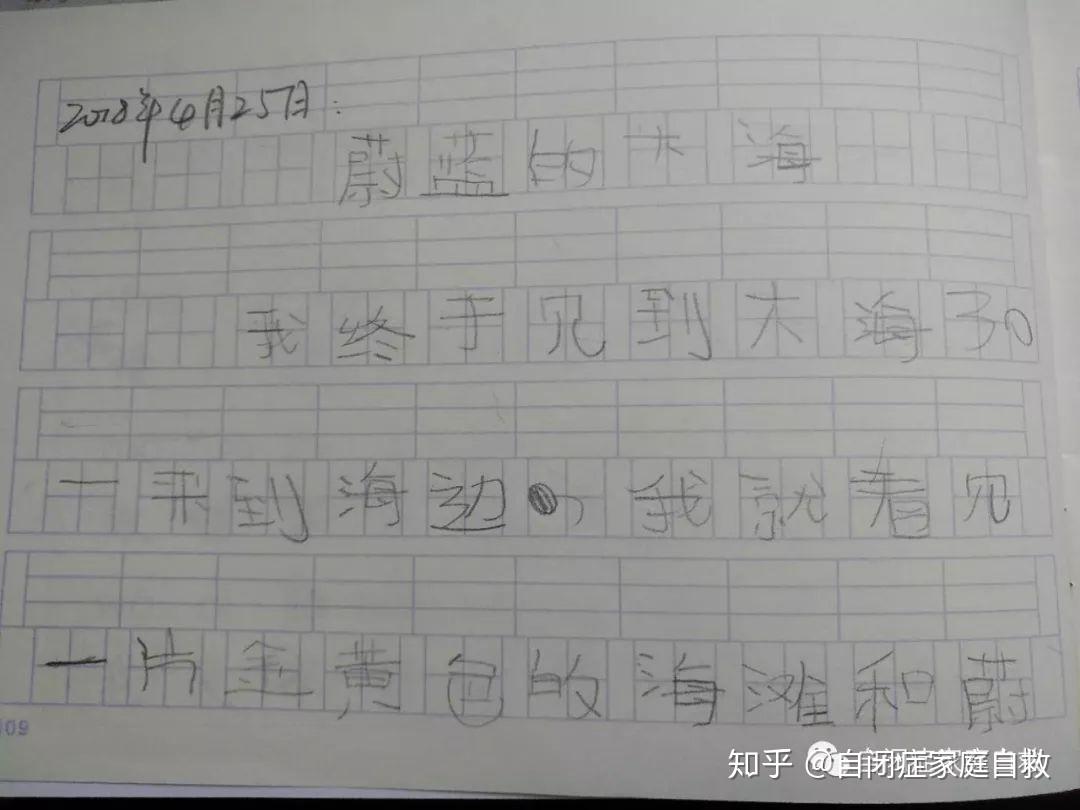 2018年4月25日:
蔚蓝的大海
我终于见到大海了。
一来到海边,我就看见
一片金黄色的海滩和蔚
09
知乎 @自闭症家庭自救